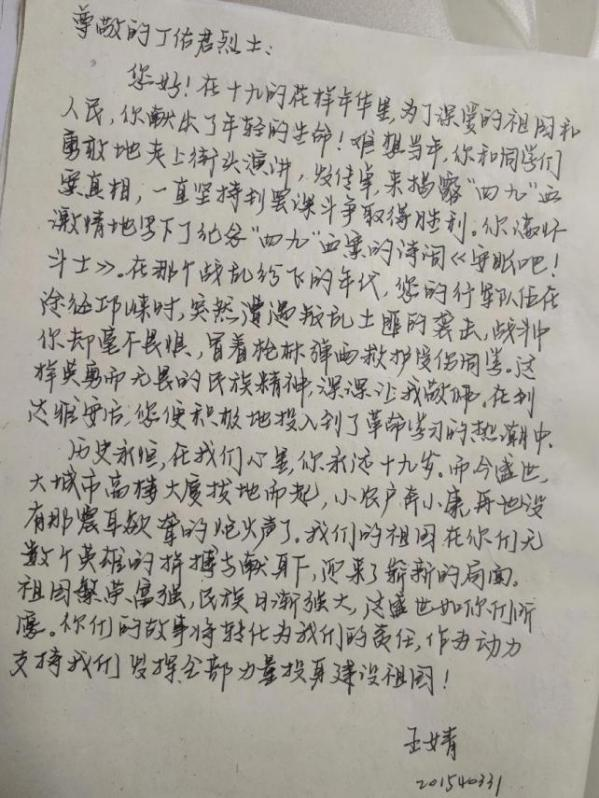 尊敬的丁佑君烈士：
您好！在十九的花样年华里，为了深爱的祖国和
人民，你献出了年轻的生命！难想当年，你和同学们
勇敢地走上街头演讲，发传单，来揭露“四九”血
案真相，一直坚持到罢课斗争取得胜利。你满怀
激情地写下了纪念“四九”血案的诗词《安眠吧！
斗士》。在那个战乱纷飞的年代，您的行军队伍在
途经邛崃时，突然遭遇叛乱土匪的袭击，战斗中
你却毫不畏惧，冒着枪林弹雨救护受伤同学。这
样英勇而无畏的民族精神，深深让我敬佩。在到
达雅安后，您便积极地投入到了革命学习的热潮中。
历史永恒，在我们心里，你永远十九岁。而今盛世，
大城市高楼大厦拔地而起，小农户奔小康，再也没
有那震耳欲聋的炮火声了。我们的祖国在你们无
数个英雄的拼搏与献身下，迎来了崭新的局面。
祖国繁荣富强，民族日渐强大，这盛世如你们所
愿。你们的故事将转化为我们的责任，作为动力
支持我们发挥全部力量投身建设祖国！
王女青
201540331